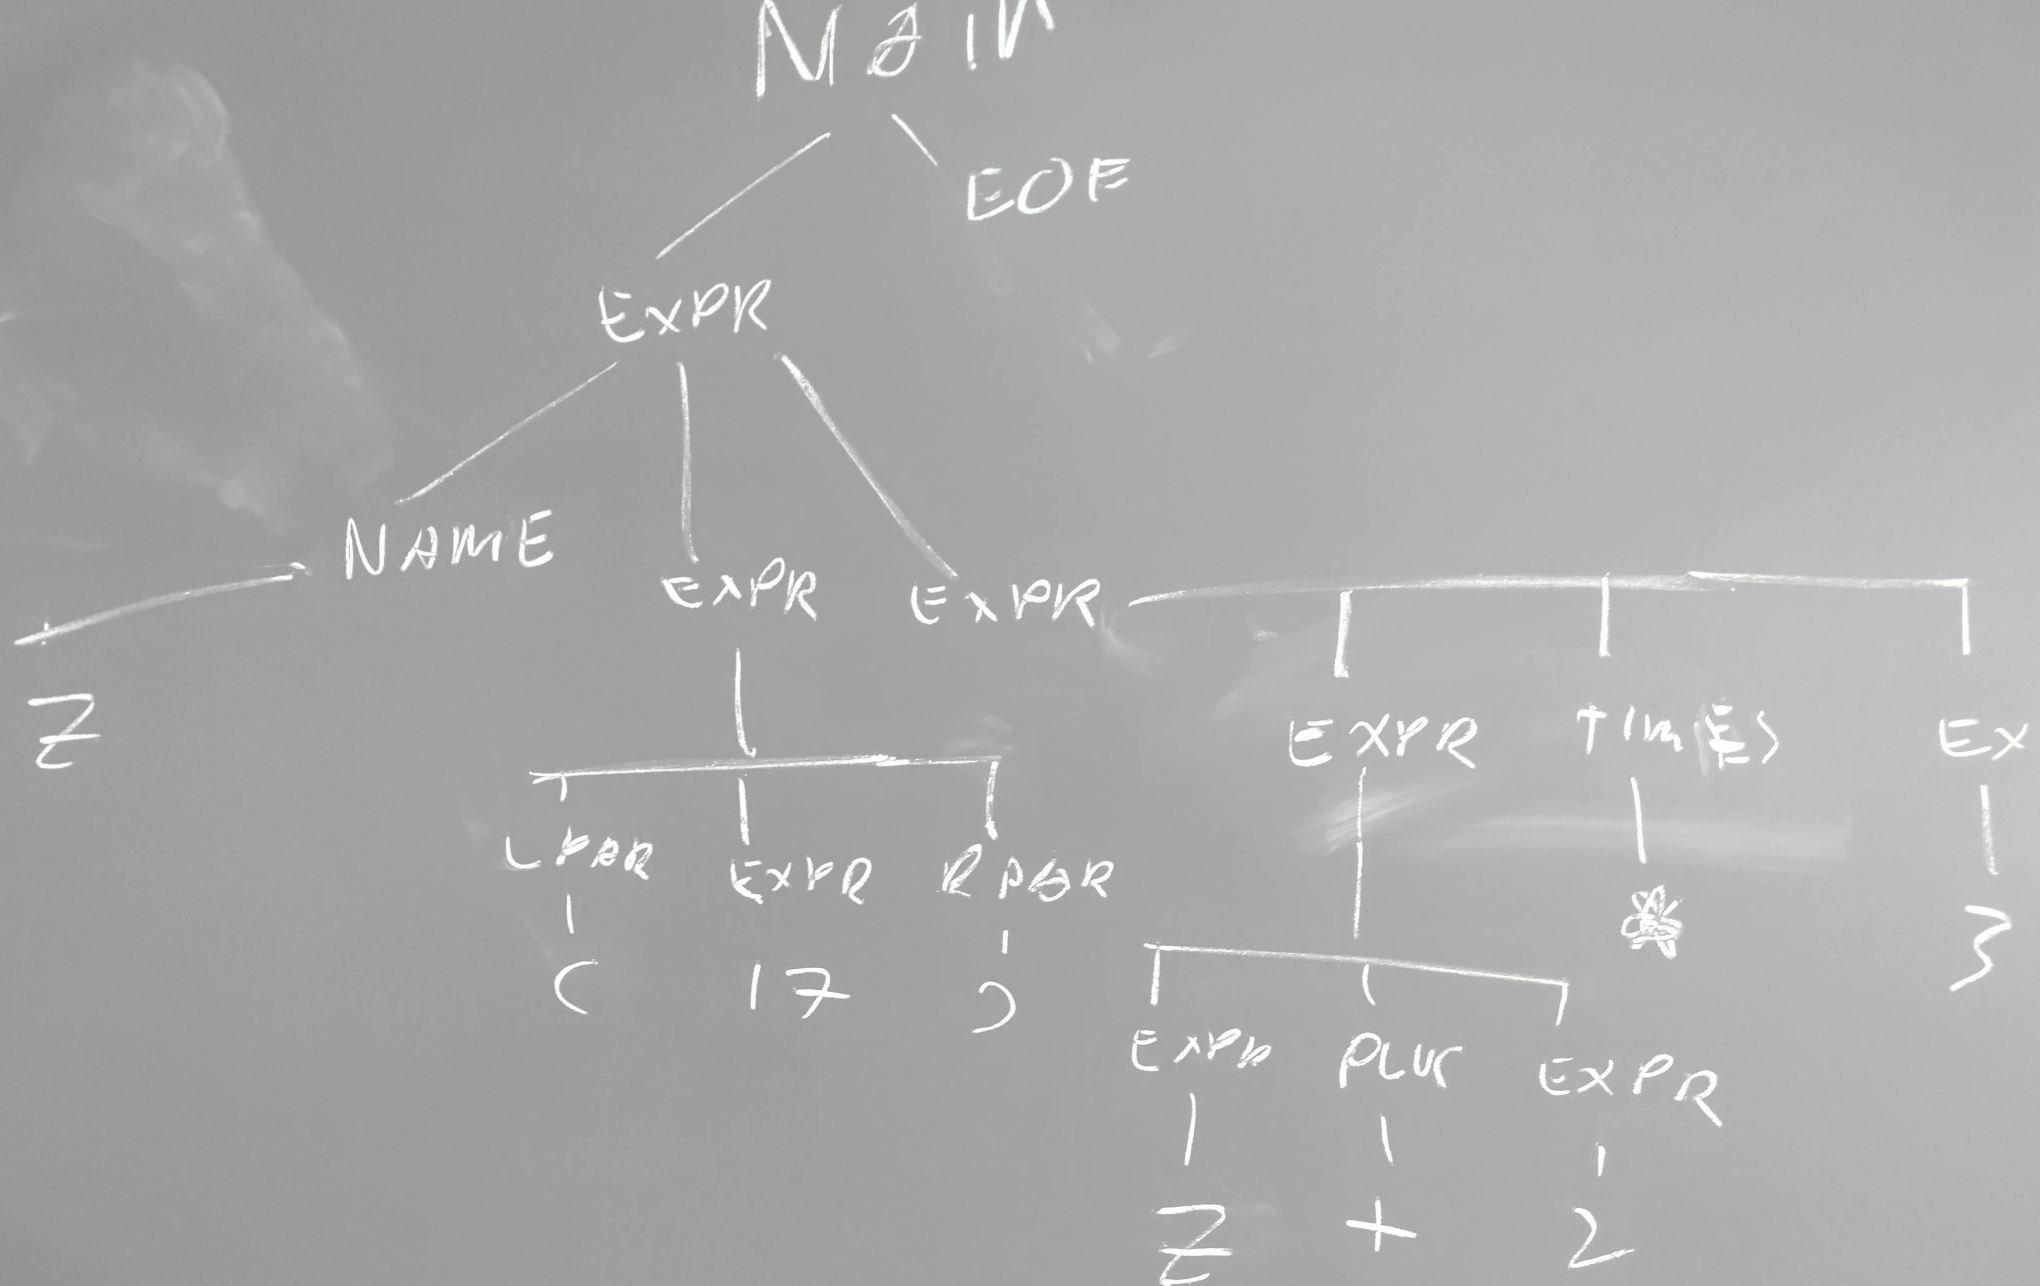 Main
EOF
EXPR
NAME EXPR EXPR
Z EXPR TIMES EX
LPAR EXPR RPAR * 3
( 17 )
EXPR PLUS EXPR
Z + 2